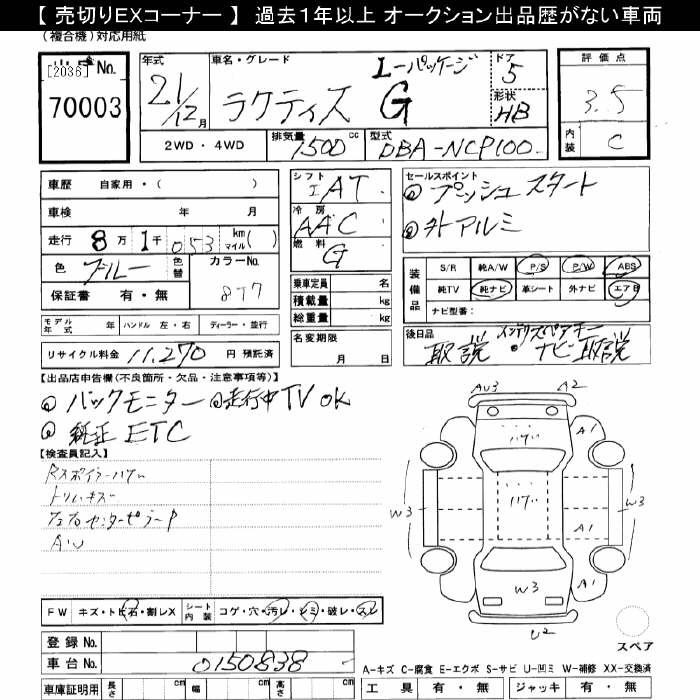 【 売切りEXコーナー 】 過去１年以上 オークション出品歴がない車両
(複合機)対応用紙
[2036] No. 70003
年式 21/12月
車名・グレード L-パッケージ
ラクティス G
ドア 5
形状 HB
評価点 3.5
内装 C
2WD ・ 4WD
排気量 1500 cc
型式 DBA-NCP100
車歴 自家用・( )
車検 年 月
走行 8万 1千 053 km マイル ( )
色 ブルー 色替 カラーNo. 8T7
保証書 有・無
シフト I AT
冷房 AAC
燃料 G
乗車定員 名
積載量 kg
総重量 kg
名変期限 月 日
セールスポイント
◎ プッシュスタート
◎ 外アルミ
装備品 S/R 純A/W P/S P/W ABS
純TV 純ナビ 革シート 外ナビ エアB
ナビ型番:
モデル年式 年 ハンドル 左・右 ディーラー・並行
リサイクル料金 11,270 円 預託済
後日品 取説 インテリスペアキー
・ナビ取説
【出品店申告欄(不良箇所・欠品・注意事項等)】
◎ バックモニター ◎走行中TV OK
◎ 純正 ETC
【検査員記入】
Rスポイラーハゲ
トリムキズ
左右センターピラーP
AU
AU3 A2
A1
ハゲ
ハゲ
W3
W3
A1
A1
W3
U2
スペア
FW キズ・トビ石・割レX シート内装 コゲ・穴・汚レ・シミ・破レ・スレ
登録 No.
車台 No. 0150838
車庫証明用 長さ cm 幅 cm 高さ cm
A-キズ C-腐食 E-エクボ S-サビ U-凹ミ W-補修 XX-交換済
工具 有・無 ジャッキ 有・無